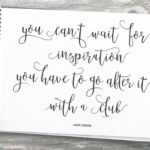 you can't wait for
inspiration
you have to go after it
with a club
- JACK LONDON